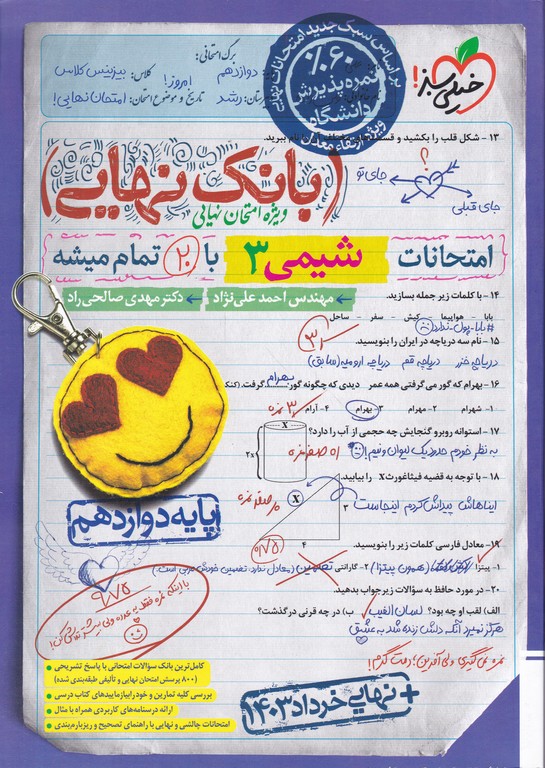 خیلی سبز!
براساس سبک جدید امتحانات نهایی
۶۰٪
نمره پذیرش
دانشگاه
ویژه ارتقاء معدل
برگ امتحانی:
دوازدهم
کلاس: بیزینس کلاس
امروز!
تاریخ و موضوع امتحان: امتحان نهایی!
رشد
۱۳ - شکل قلب را بکشید و
نام ببرید.
؟
جای تو
جای قبلی
(بانک نهایی)
ویژه امتحان نهایی
امتحانات شیمی ۳ با ۲۰ تمام میشه
مهندس احمد علی‌نژاد
دکتر مهدی صالحی‌راد
۱۴ - با کلمات زیر جمله بسازید.
بابا - هواپیما - کیش - سفر - ساحل
#بابا_پول_ندارد
۱۵ - نام سه دریاچه در ایران را بنویسید.
دریاچه خزر دریاچه قم دریاچه ارومیه (سابق)
۱۶ - بهرام که گور می گرفتی همه عمر دیدی که چگونه گور بهرام گرفت. (کنکور
۱- شهرام ۲- مهرام ۳- بهرام ۴- آرام
۳ نمره
۱۷ - استوانه روبرو گنجایش چه حجمی از آب را دارد؟
به نظر خودم حدود یک لیوان و نیم!
X
۲x
صفر نمره
۱۸ - با توجه به قضیه فیثاغورث X را بیابید.
ایناهاش پیداش کردم اینجاست
X
۳
۴
صفر نمره
۱۹ - معادل فارسی کلمات زیر را بنویسید.
۱- پیتزا (همون پیتزا) ۲- گارانتی تضمین (معادل ندارد. تضمین خودش عربی است.)
۲۰ - در مورد حافظ به سوالات زیر جواب بدهید.
الف) لقب او چه بود؟ لسان الغیب ب) در چه قرنی درگذشت؟
هرگز نمیرد آنکه دلش زنده شد به عشق
پایه دوازدهم
نمره نمی‌گیری ولی آفرین! دمت گرم!
کامل‌ترین بانک سؤالات امتحانی با پاسخ تشریحی
(۸۰۰ پرسش امتحان نهایی و تألیفی طبقه‌بندی شده)
بررسی کلیه تمارین و خودرابیازمایید‌های کتاب درسی
ارائه درسنامه‌های کاربردی همراه با مثال
امتحانات چالشی و نهایی با راهنمای تصحیح و ریزبارم‌بندی
+ نهایی خرداد ۱۴۰۳